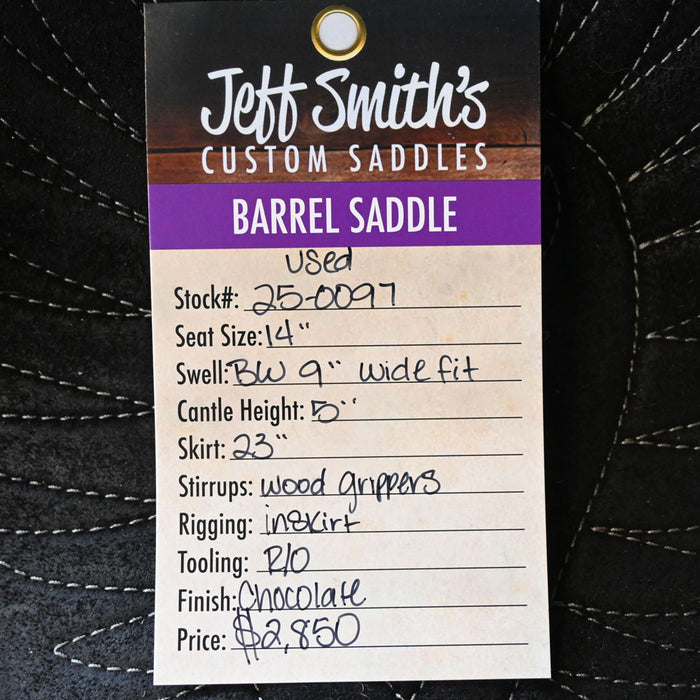 Jeff Smith's
CUSTOM SADDLES
BARREL SADDLE
used
Stock#: 25-0097
Seat Size: 14"
Swell: BW 9" wide fit
Cantle Height: 5"
Skirt: 23"
Stirrups: wood grippers
Rigging: inskirt
Tooling: R/O
Finish: Chocolate
Price: $2,850